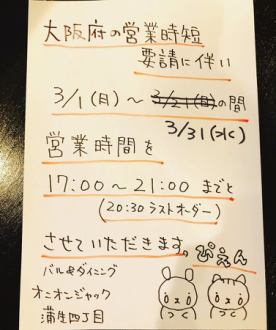 大阪府の営業時短
要請に伴い
3/1(月)～3/21(日)の間
3/31(水)
営業時間を
17:00～21:00までと
(20:30ラストオーダー)
させていただきます。ぴえん
バル&ダイニング
オニオンジャック
蒲生四丁目